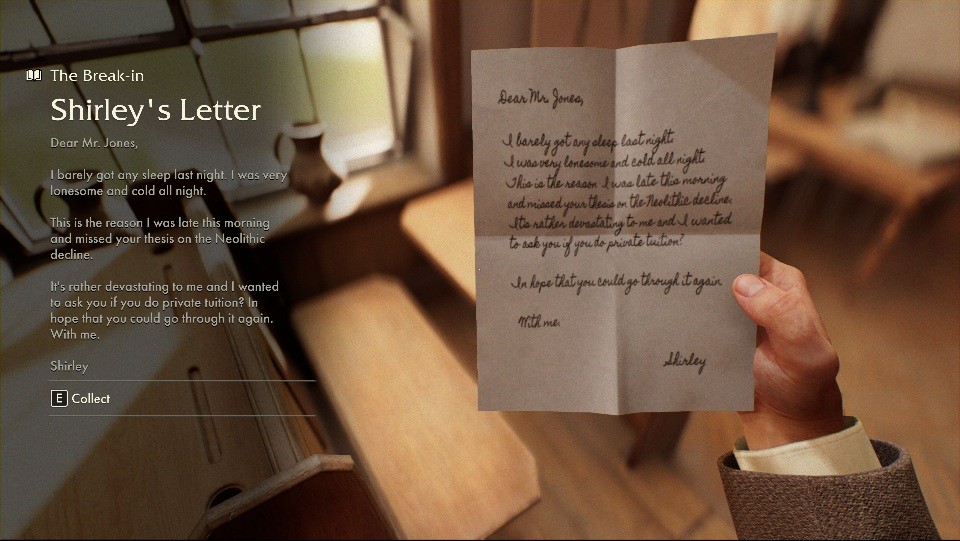 The Break-in
Shirley's Letter
Dear Mr. Jones,
I barely got any sleep last night. I was very
lonesome and cold all night.
This is the reason I was late this morning
and missed your thesis on the Neolithic
decline.
It's rather devastating to me and I wanted
to ask you if you do private tuition? In
hope that you could go through it again.
With me.
Shirley
E Collect
Dear Mr. Jones,
I barely got any sleep last night.
I was very lonesome and cold all night.
This is the reason I was late this morning
and missed your thesis on the Neolithic decline.
It's rather devastating to me and I wanted
to ask you if you do private tuition?
In hope that you could go through it again.
With me.
Shirley